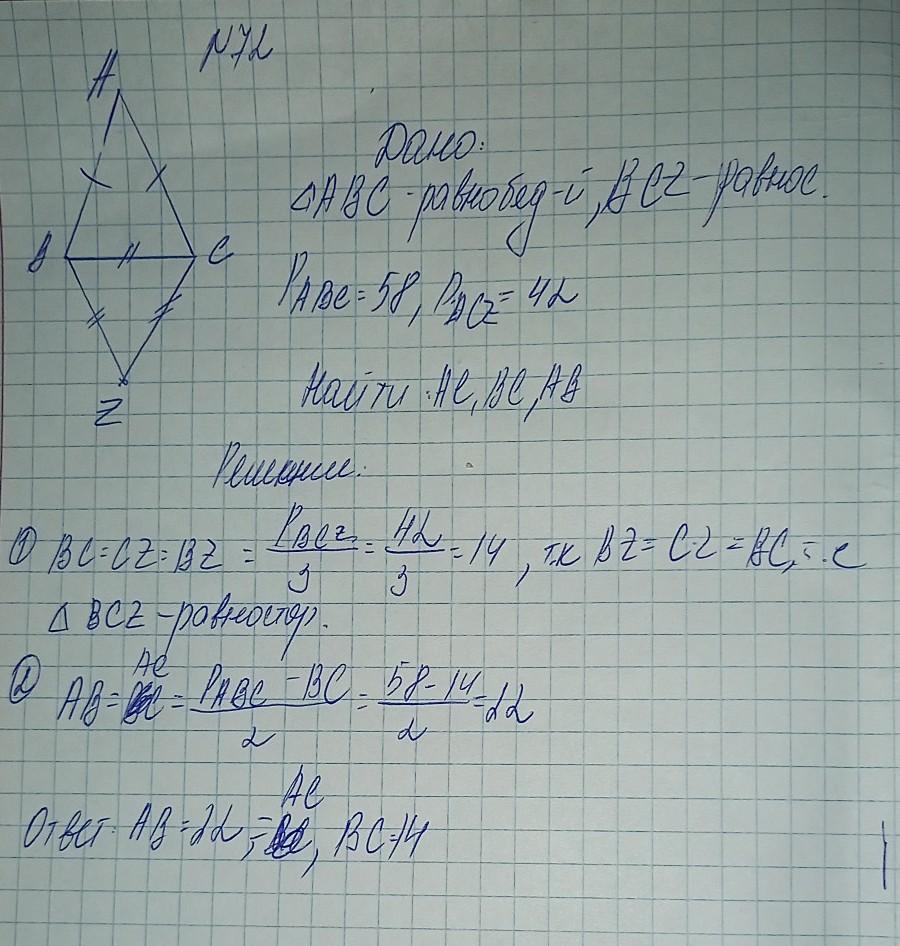 N72
A
B
C
Z
Дано:
△ABC - равнобед-й, BCZ - равнос.
P_ABC = 58, P_BCZ = 42
Найти: AC, BC, AB
Решение:
① BC = CZ = BZ = P_BCZ/3 = 42/3 = 14, т.к BZ = CZ = BC, т.е
△ BCZ - равностор.
② AB = AC = (P_ABC - BC)/2 = (58 - 14)/2 = 22
Ответ: AB = 22, = AC, BC = 14